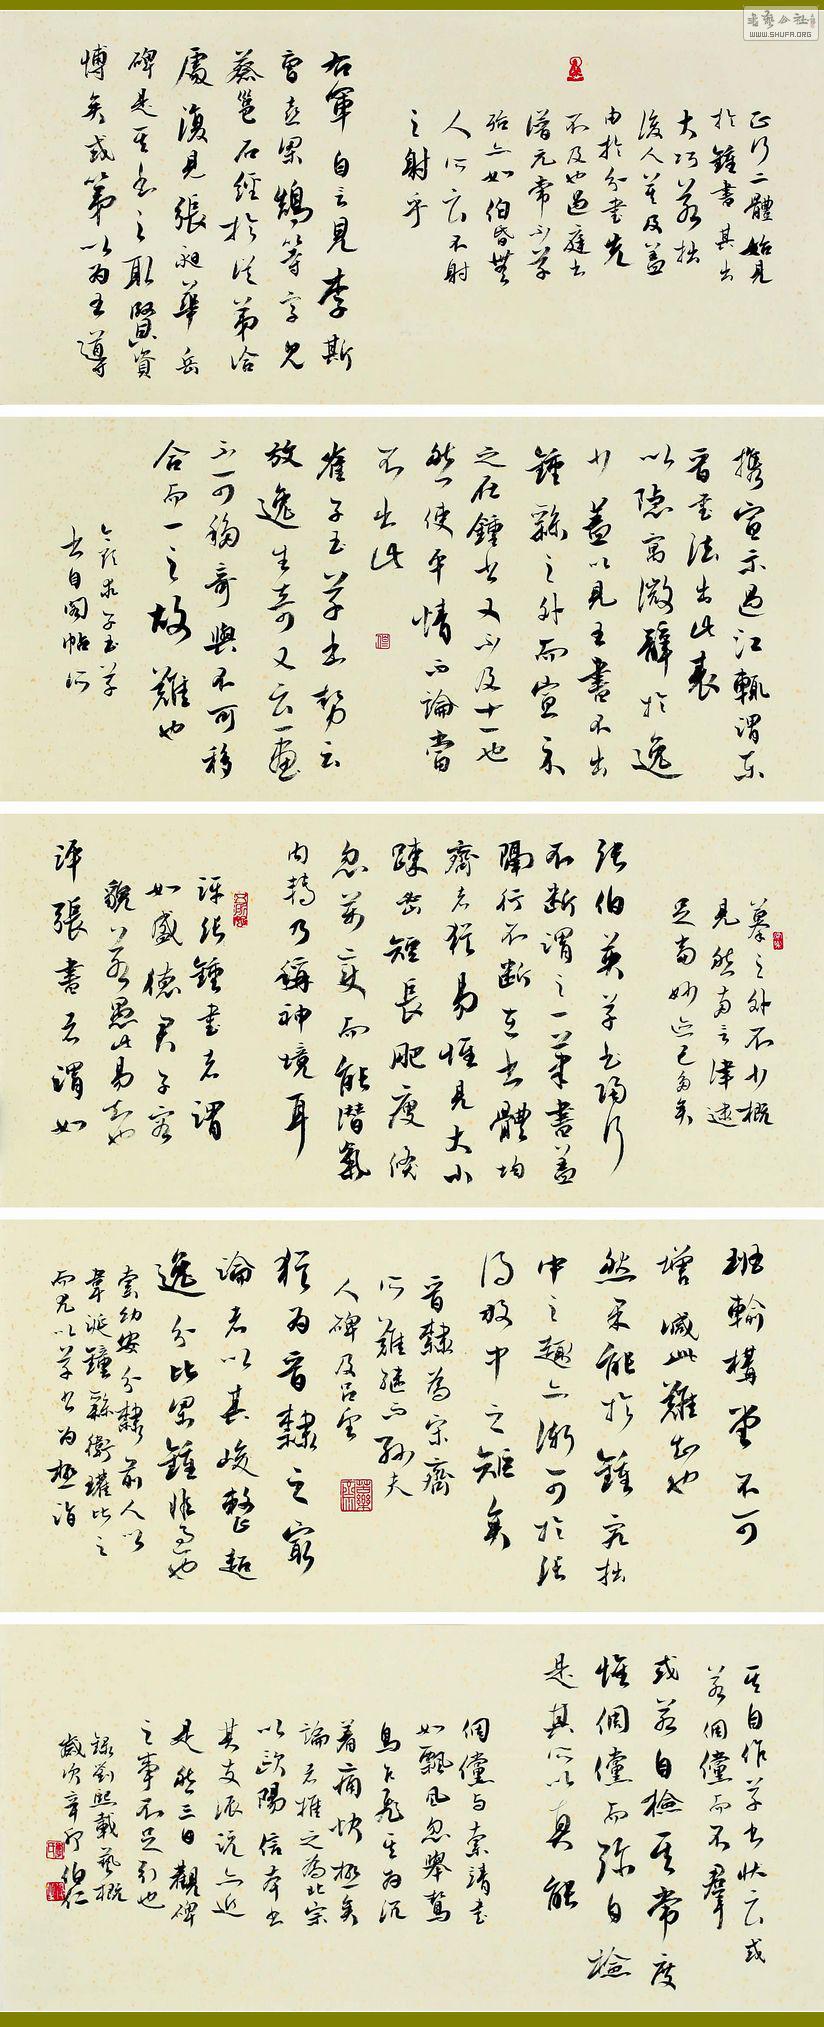 正行二體始見
於鍾書其書
大巧若拙
後人莫及蓋
由於分書先
不及也過庭書
譜元常不草
殆亦如伯昏無
人所言不射
之射乎
右軍自言見李斯
曹喜梁鵠等字見
蔡邕石經於從弟洽
處復見張昶華岳
碑是其書之取賢資
博矣或第以為王導
攜宣示過江輒謂東
晉書法出此表
以隱寓微辭於逸
少蓋以見王書不出
鍾繇之外而宣示
之在鍾書又不及十一也
然使平情而論當
不出此
崔子玉草書勢云
放逸生奇又云一畫
不可移奇與不可移
合而一之故難也
今欲求子玉草
書自閣帖所
摹之外不少概
見然兩言津逮
足當妙迹已多矣
張伯英草書隔行
不斷謂之一筆書蓋
隔行不斷在書體均
齊者猶易惟見大小
疎密短長肥瘦倏
忽萬變而能潛氣
內轉乃稱神境耳
評張鍾書者謂
如盛德君子容
貌若愚此易知也
評張書者謂如
班輸構堂不可
增減此難知也
然果能於鍾究拙
中之趣亦漸可於張
得放中之矩矣
晉隸為宋齊
所難繼而孫夫
人碑及呂望
猶為晉隸之最
論者以其峻整超
逸分比梁鍾非過也
索幼安分隸前人以
韋誕鍾繇衛瓘比之
而尤以草書為極詣
其自作草書狀云或
若倜儻而不羣
或若自檢其常度
惟倜儻而彌自檢
是其所以真能
倜儻與索靖書
如飄風忽舉鷙
鳥乍飛其為沉
著痛快極矣
論者推之為北宗
以歐陽信本書
其支派說亦近
是然三日觀碑
之事不足引也
錄劉熙載藝概
歲次辛卯伯仁
書藝公社
WWW.SHUFA.ORG